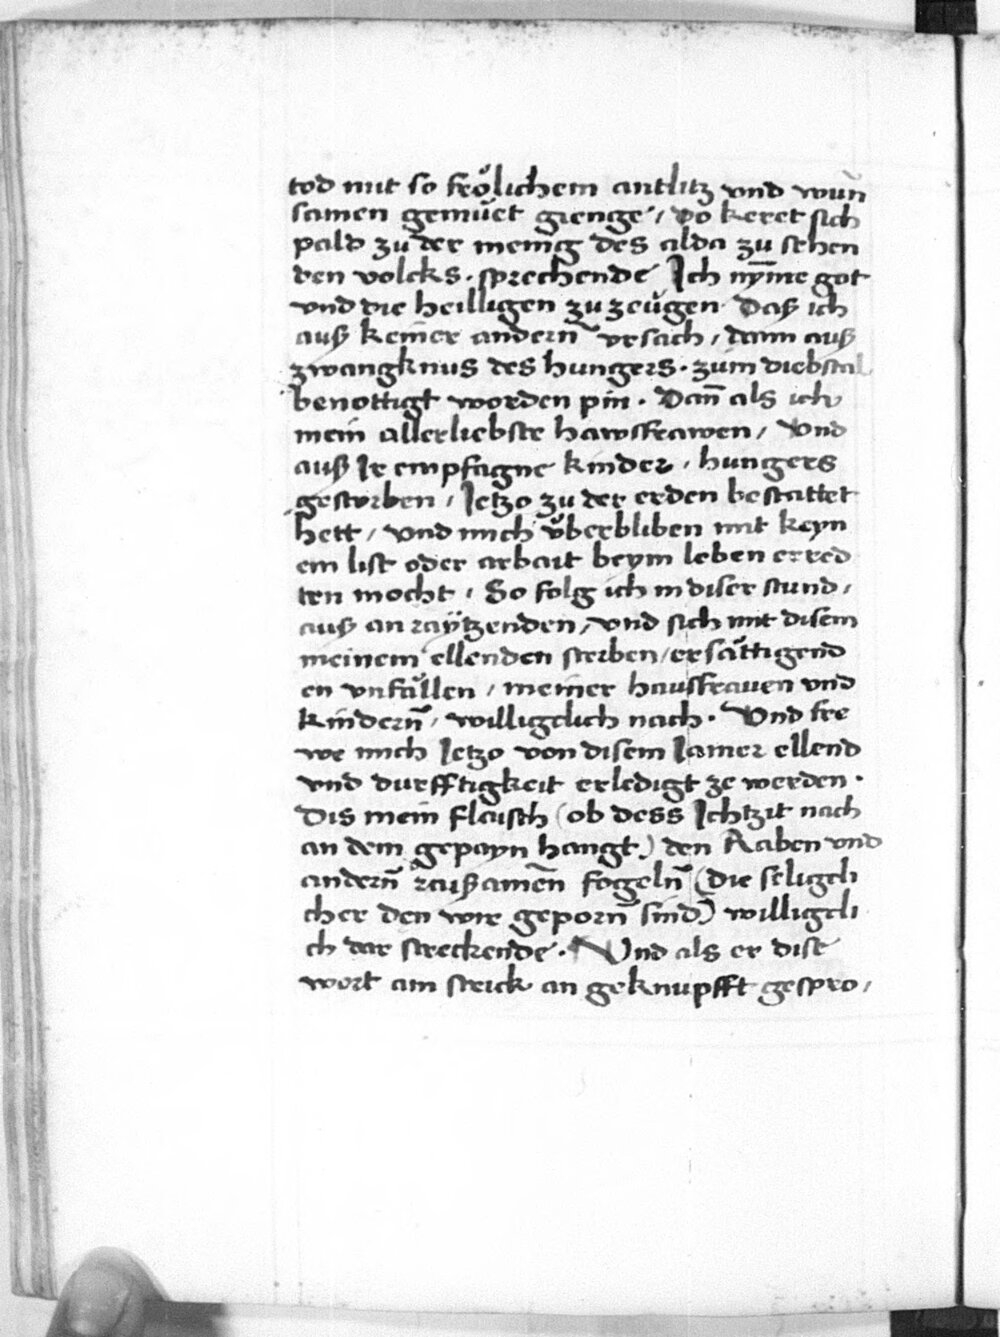 tod mit so frölichem antlitz vnd wun̄
samen gemüet gienge / Do keret sich
pald zu der menig des alda zu sehen
den volcks · sprechende Ich nȳme got
vnd die heilligen zu zeügen Daß ich
auß keiner andern̄ vrsach / dann auß
zwangknus des hungers · zům diebstal
benottigt worden pin · Dan̄ als ich
mein allerliebste hawsfrawen / Vnd
auß Ir empfagne kinder / hungers
gestorben / Ietzo zu der erden bestattet
hett / vnd mich v̈berbliben mit keyn
em list oder arbait beym leben erred
ten mocht / So folg ich in diser stund /
auß an raÿtzenden / vnd sich mit disem
meinem ellenden sterben / ersättigend
en vnfällen / meiner hausfrauen vnd
kindern̄ / willigclich nach · Vnd fre
we mich Ietzo von disem Iamer ellend
vnd durfftigkeit erledigt ze werden ·
Dis mein flaisch (ob dess Ichtzit nach
an dem gepayn hangt) den Raben vnd
andern̄ raußamen̄ fogeln̄ (die seligcli
cher den wir geporn̄ sind) willigcli
ch dar streckende · Vnd als er dise
wort am strick an geknupfft gespro /